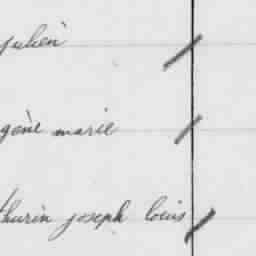 julien
gène marie
thurin joseph louis